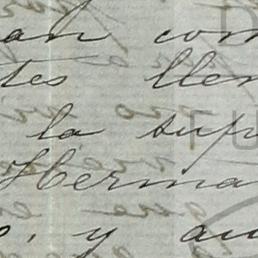 an com
tes llen
la sup
Herma
o, y au